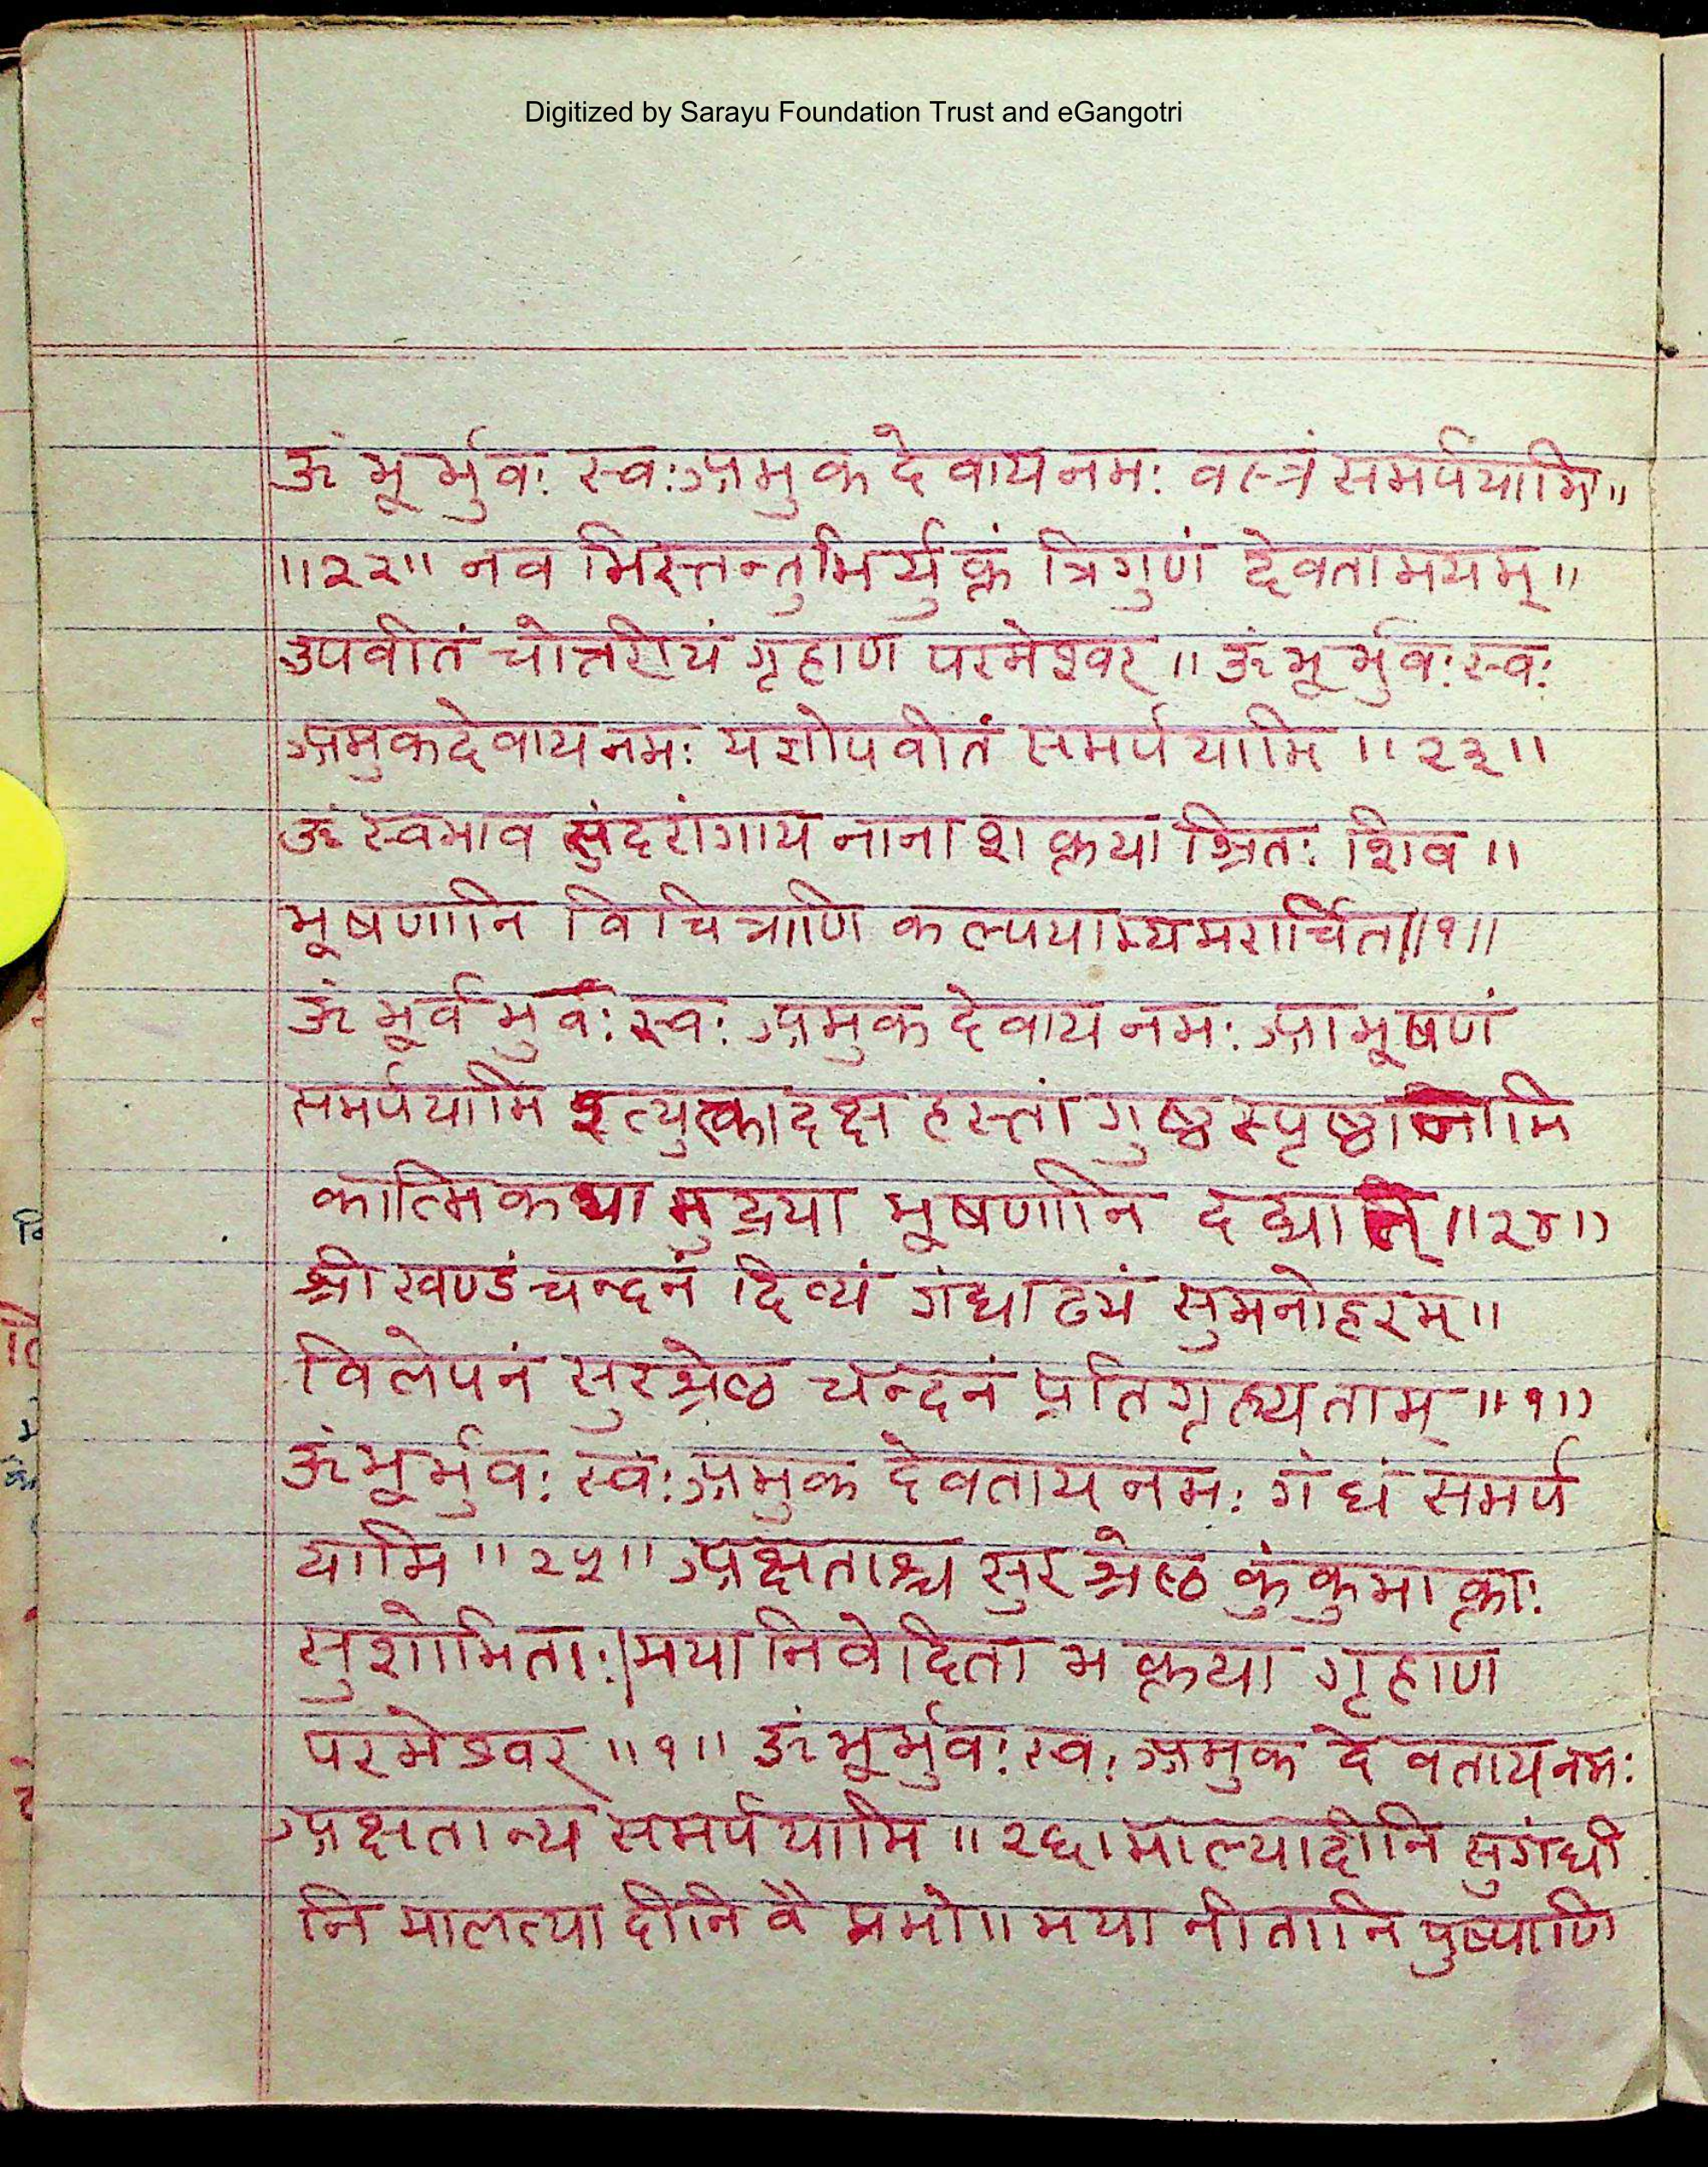 Digitized by Sarayu Foundation Trust and eGangotri
ॐ भूर्भुवः स्वः अमुक देवाय नमः वस्त्रं समर्पयामि॥
॥२२॥ नव भिस्तन्तुभिर्युक्तं त्रिगुणं देवतामयम्॥
उपवीतं चोत्तरीयं गृहाण परमेश्वर॥ ॐ भूर्भुवः स्वः
अमुकदेवाय नमः यज्ञोपवीतं समर्पयामि ॥२३॥
ॐ स्वभाव सुंदरांगाय नाना शक्त्या श्रितः शिव॥
भूषणानि विचित्राणि कल्पयाम्यमरार्चित॥१॥
ॐ भूर्व भुर्वः स्वः अमुक देवाय नमः आभूषणं
समर्पयामि इत्युत्का दक्ष हस्तां गुष्ठ स्पृष्ठानामि
कात्मिकया मुद्रया भूषणानि दद्यात्॥२४॥
श्रीखण्डं चन्दनं दिव्यं गंधाढयं सुमनोहरम्॥
विलेपनं सुरश्रेष्ठ चन्दनं प्रतिगृह्यताम्॥१॥
ॐ भूर्भुवः स्वः अमुक देवताय नमः गंधं समर्प
यामि॥२५॥ अक्षताश्च सुरश्रेष्ठ कुंकुमाक्ताः
सुशोभिताः।मया निवेदिता भक्त्या गृहाण
परमेश्वर॥१॥ ॐ भूर्भुवः स्वः अमुक देवताय नमः
अक्षतान्य समर्पयामि॥२६। माल्यादीनि सुगंधी
नि मालत्यादीनि वै प्रभो॥मया नीतानि पुष्पाणि